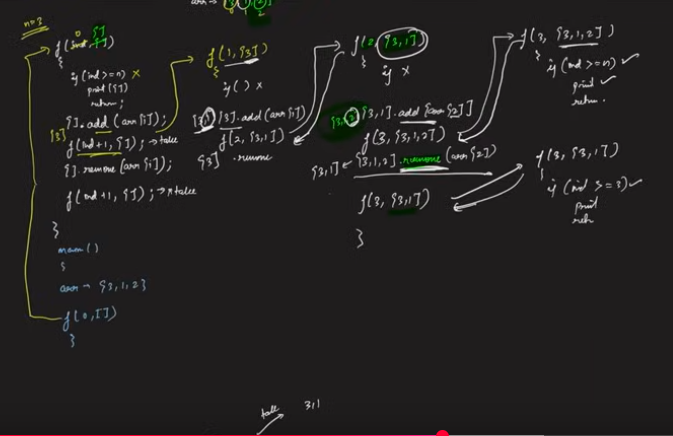 arr → [3, 1, 2]
0 1 2
n=3
f(ind, [])
{
if (ind >= n) x
print ([])
return;
[].add (arr[i]);
[3]
f(ind+1, []); → take
[].remove (arr[i]);
f(ind+1, []); → n take
}
main()
{
arr → {3,1,2}
f(0, [])
}
f(1, [3])
{
if () x
[3,1] [3].add (arr[i])
f(2, [3,1])
[3] .remove
f(2, [3,1])
{
if x
[3,1,2] [3,1].add [arr[2]]
f(3, [3,1,2])
[3,1] ← [3,1,2].remove (arr[2])
f(3, [3,1])
}
f(3, [3,1,2])
{
if (ind >= n) ✓
print ✓
return.
f(3, [3,1])
{
if (ind >= 3) ✓
print
retn
take
3,1